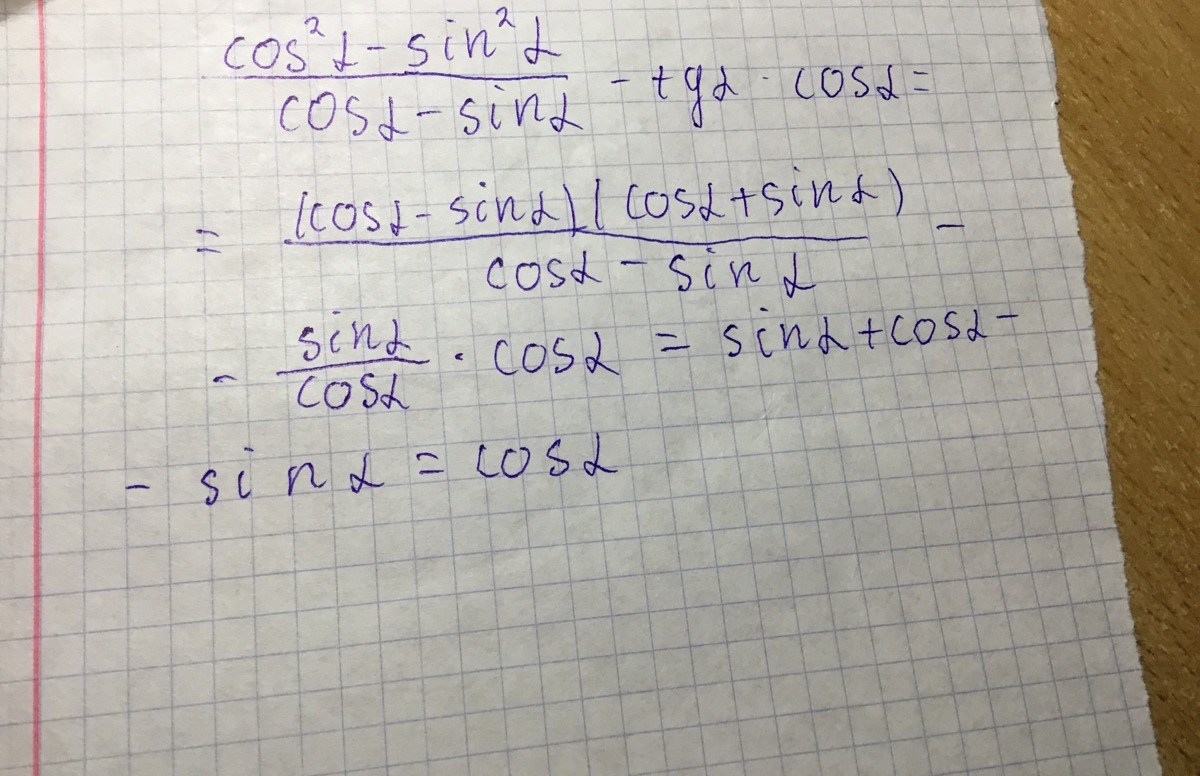 cos²α - sin²α / cosα - sinα - tgα · cosα =
= (cosα - sinα)(cosα + sinα) / cosα - sinα -
- sinα / cosα · cosα = sinα + cosα -
- sinα = cosα